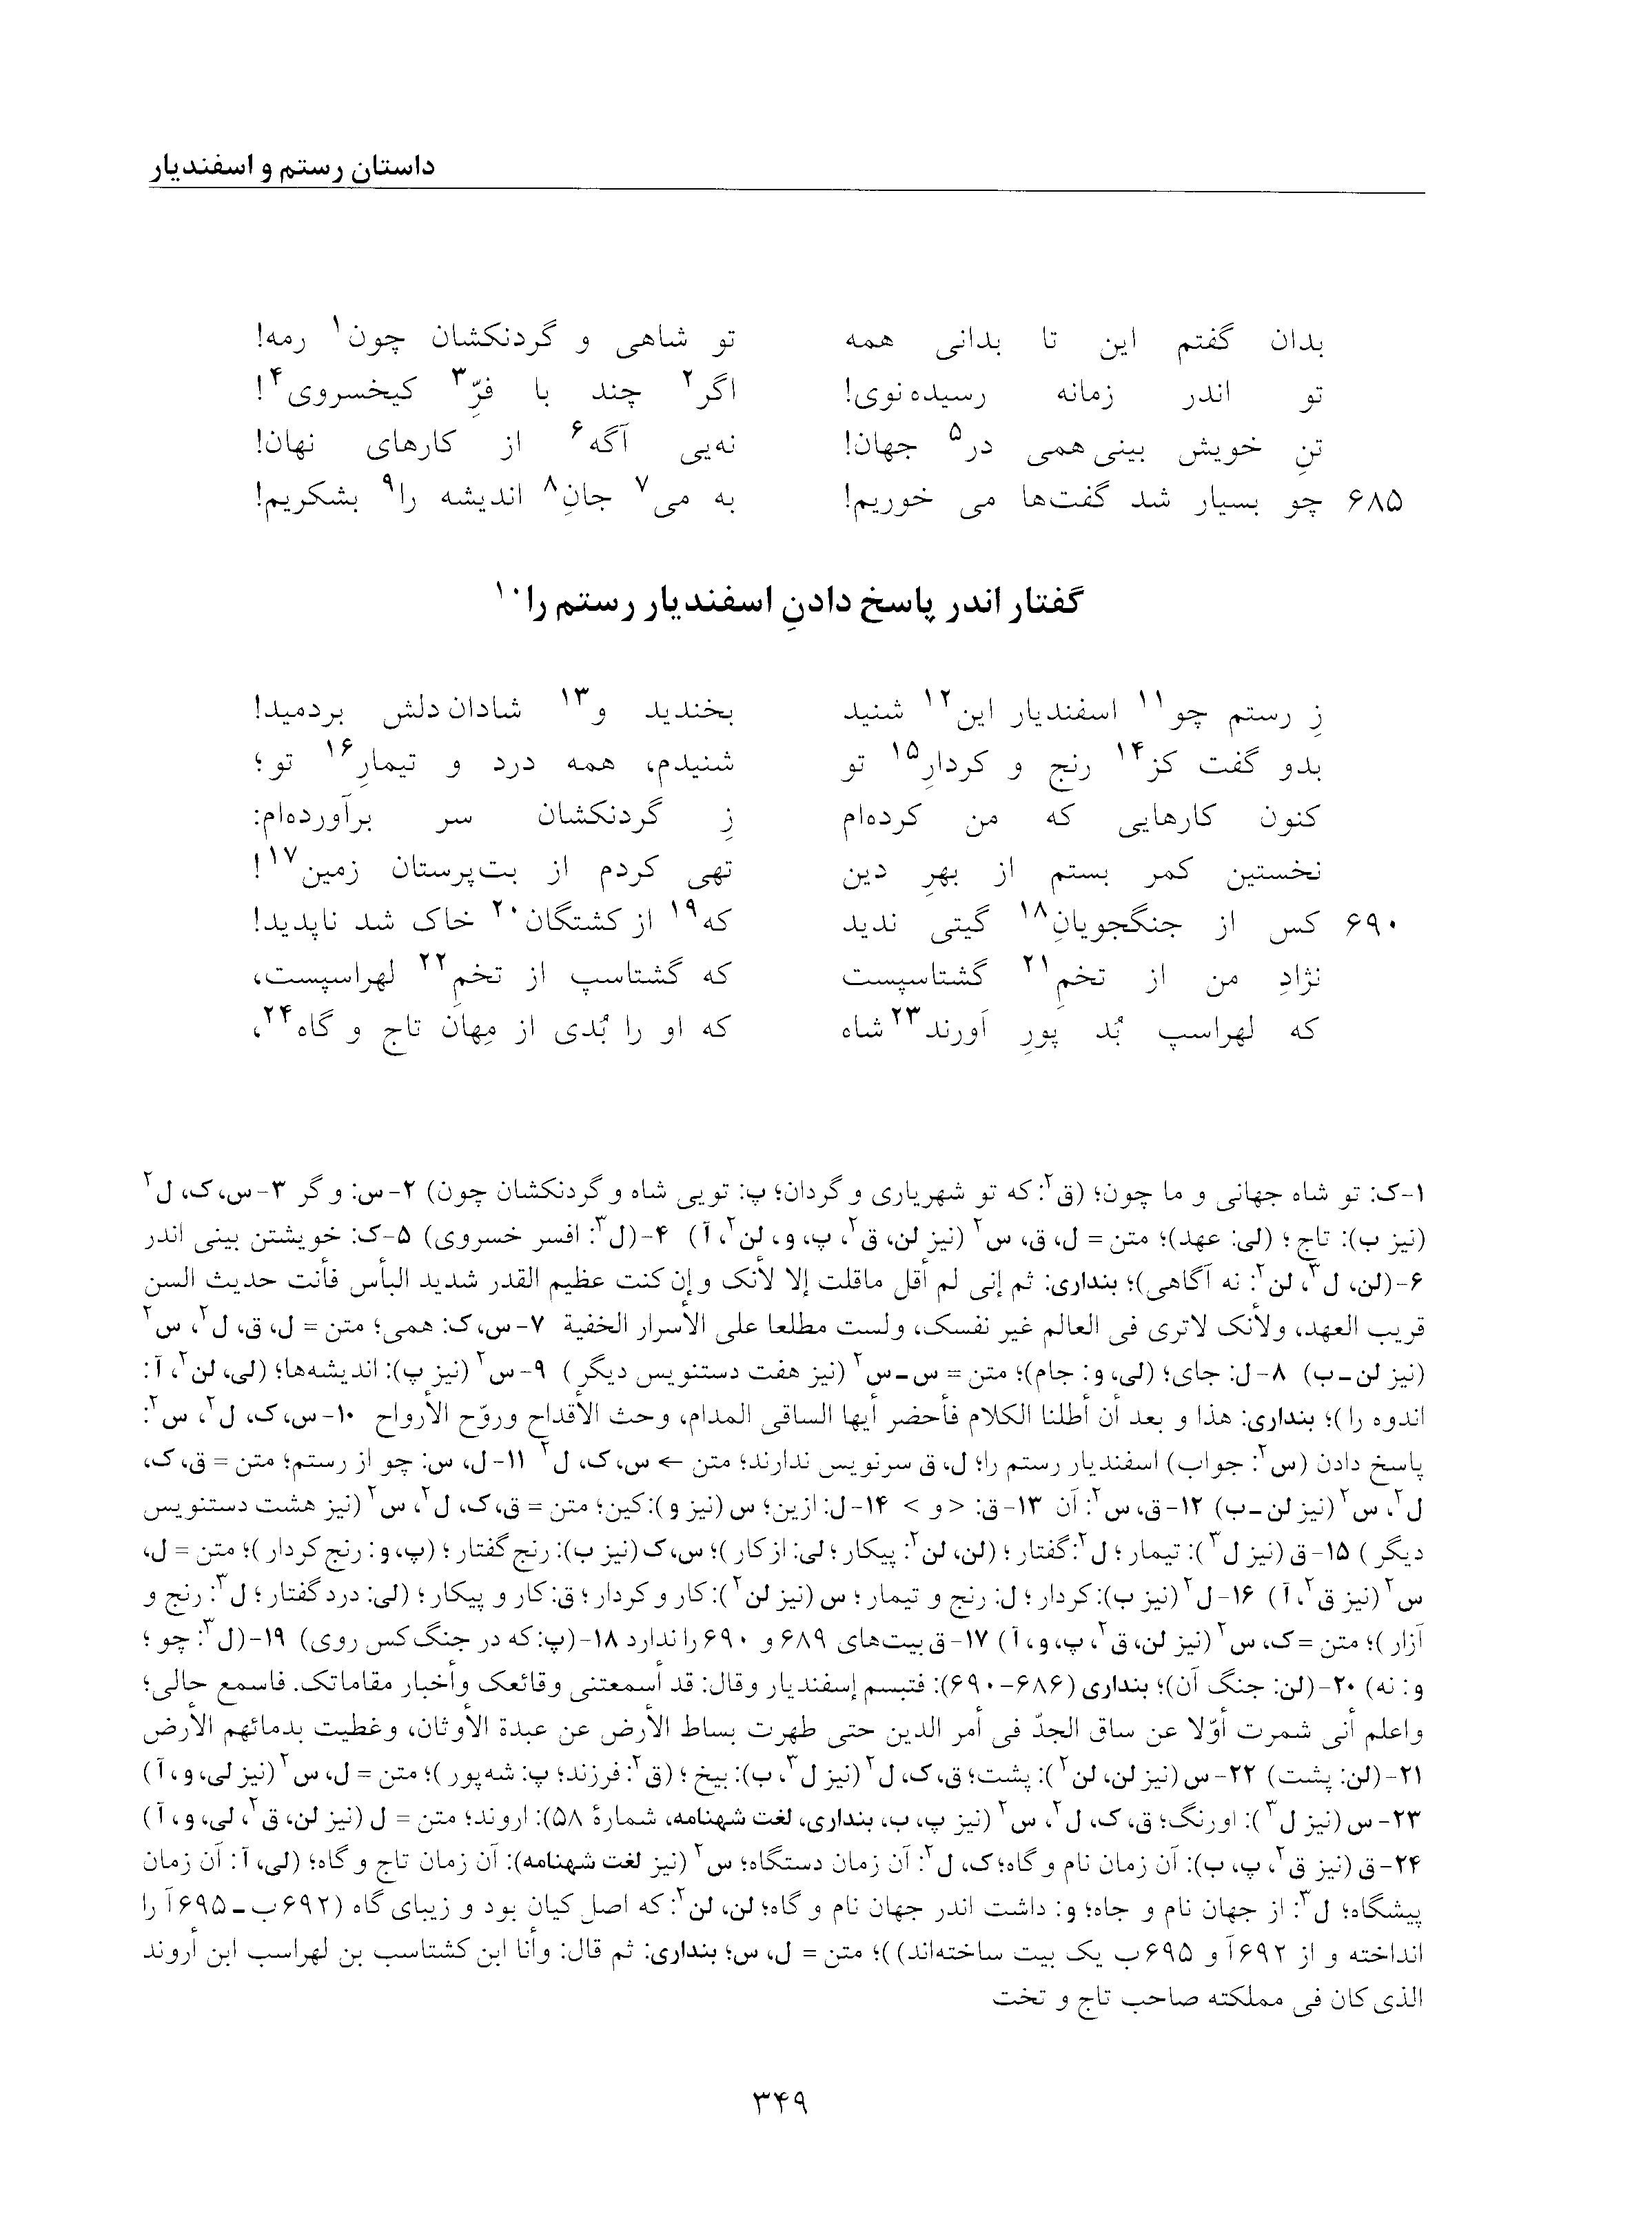 داستان رستم و اسفندیار
بدان گفتم این تا بدانی همه تو شاهی و گردنکشان چون۱ رمه!
تو اندر زمانه رسیده‌نوی! اگر۲ چند با فرِّ۳ کیخسروی۴!
تنِ خویش بینی همی در۵ جهان! نه‌یی آگه۶ از کارهای نهان!
۶۸۵ چو بسیار شد گفت‌ها می خوریم! به می۷ جانِ۸ اندیشه را۹ بشکریم!
گفتار اندر پاسخ دادنِ اسفندیار رستم را۱۰
زِ رستم چو۱۱ اسفندیار این۱۲ شنید بخندید و۱۳ شادان‌دلش بردمید!
بدو گفت کز۱۴ رنج و کردارِ۱۵ تو شنیدم، همه درد و تیمارِ۱۶ تو؛
کنون کارهایی که من کرده‌ام زِ گردنکشان سر برآورده‌ام:
نخستین کمر بستم از بهرِ دین تهی کردم از بت‌پرستان زمین۱۷!
۶۹۰ کس از جنگجویانِ۱۸ گیتی ندید که۱۹ از کشتگان۲۰ خاک شد ناپدید!
نژادِ من از تخمِ۲۱ گشتاسپست که گشتاسپ از تخمِ۲۲ لهراسپست،
که لهراسپ بُد پورِ آورند۲۳ شاه که او را بُدی از مِهان تاج و گاه۲۴،
۱-ک: تو شاه جهانی و ما چون؛ (ق۲: که تو شهریاری و گردان؛ پ: تویی شاه و گردنکشان چون) ۲-س: و گر ۳-س، ک، ل۲
(نیز ب): تاج؛ (لی: عهد)؛ متن = ل، ق، س۲ (نیز لن، ق۲، پ، و، لن۲، آ) ۴-(ل۳: افسر خسروی) ۵-ک: خویشتن بینی اندر
۶-(لن، ل۳، لن۲: نه آگاهی)؛ بنداری: ثم إنی لم أقل ماقلت إلا لأنک وإن کنت عظیم القدر شدید البأس فأنت حدیث السن
قریب العهد، ولأنک لاتری فی العالم غیر نفسک، ولست مطلعا علی الأسرار الخفیة ۷-س، ک: همی؛ متن = ل، ق، ل۲، س۲
(نیز لن-ب) ۸-ل: جای؛ (لی، و: جام)؛ متن = س-س۲ (نیز هفت دستنویس دیگر) ۹-س۲ (نیز پ): اندیشه‌ها؛ (لی، لن۲، آ:
اندوه را)؛ بنداری: هذا و بعد أن أطلنا الکلام فأحضر أیها الساقی المدام، وحث الأقداح وروّح الأرواح ۱۰-س، ک، ل۲، س۲:
پاسخ دادن (س۲: جواب) اسفندیار رستم را؛ ل، ق سرنویس ندارند؛ متن ← س، ک، ل۲ ۱۱-ل، س: چو از رستم؛ متن = ق، ک،
ل۲، س۲ (نیز لن-ب) ۱۲-ق، س۲: آن ۱۳-ق: <و> ۱۴-ل: ازین؛ س (نیز و): کین؛ متن = ق، ک، ل۲، س۲ (نیز هشت دستنویس
دیگر) ۱۵-ق (نیز ل۳): تیمار؛ ل۲: گفتار؛ (لن، لن۲: پیکار؛ لی: از کار)؛ س، ک (نیز ب): رنج گفتار؛ (پ، و: رنج کردار)؛ متن = ل،
س۲ (نیز ق۲، آ) ۱۶-ل۲ (نیز ب): کردار؛ ل: رنج و تیمار؛ س (نیز لن۲): کار و کردار؛ ق: کار و پیکار؛ (لی: درد گفتار؛ ل۳: رنج و
آزار)؛ متن = ک، س۲ (نیز لن، ق۲، پ، و، آ) ۱۷-ق بیت‌های ۶۸۹ و ۶۹۰ را ندارد ۱۸-(پ: که در جنگ کس روی) ۱۹-(ل۳: چو؛
و: نه) ۲۰-(لن: جنگ آن)؛ بنداری (۶۸۶-۶۹۰): فتبسم إسفندیار وقال: قد أسمعتنی وقائعک وأخبار مقاماتک. فاسمع حالی؛
واعلم أنی شمرت أوّلا عن ساق الجدّ فی أمر الدین حتی طهرت بساط الأرض عن عبدة الأوثان، وغطیت بدمائهم الأرض
۲۱-(لن: پشت) ۲۲-س (نیز لن، لن۲): پشت؛ ق، ک، ل۲ (نیز ل۳، ب): بیخ؛ (ق۲: فرزند؛ پ: شه‌پور)؛ متن = ل، س۲ (نیز لی، و، آ)
۲۳-س (نیز ل۳): اورنگ؛ ق، ک، ل۲، س۲ (نیز پ، ب، بنداری، لغت شهنامه، شمارهٔ ۵۸): اروند؛ متن = ل (نیز لن، ق۲، لی، و، آ)
۲۴-ق (نیز ق۲، پ، ب): آن زمان نام و گاه؛ ک، ل۲: آن زمان دستگاه؛ س۲ (نیز لغت شهنامه): آن زمان تاج و گاه؛ (لی، آ: آن زمان
پیشگاه؛ ل۳: از جهان نام و جاه؛ و: داشت اندر جهان نام و گاه؛ لن، لن۲: که اصل کیان بود و زیبای گاه (۶۹۲ب-۶۹۵آ را
انداخته و از ۶۹۲آ و ۶۹۵ب یک بیت ساخته‌اند))؛ متن = ل، س؛ بنداری: ثم قال: وأنا ابن کشتاسب بن لهراسب ابن أروند
الذی کان فی مملکته صاحب تاج و تخت
۳۴۹